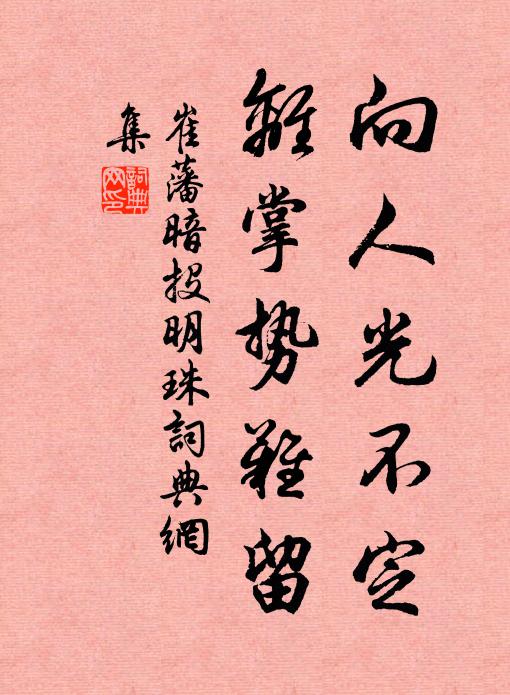 向人光不定
離掌势難留
崔藩暗投明珠詞典網
集
詞典网印